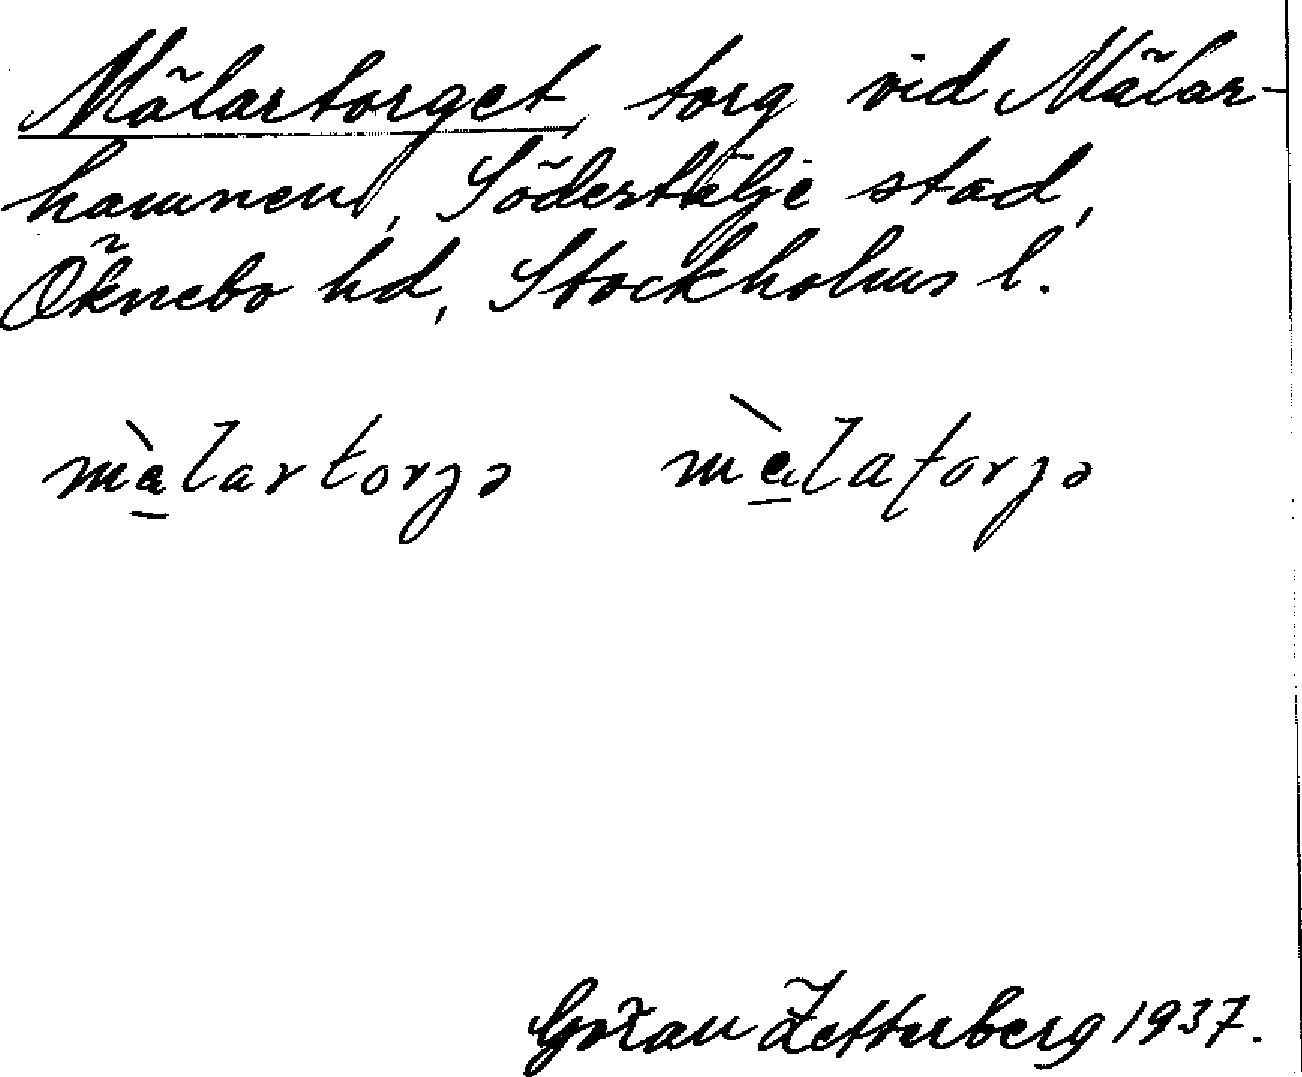 Mälartorget, torg vid Mälar-
hamnen, Södertälje stad,
Öknebo hd, Stockholms l.
mὲlartorjə mὲlaƫorjə
Göran Zetterberg 1937.